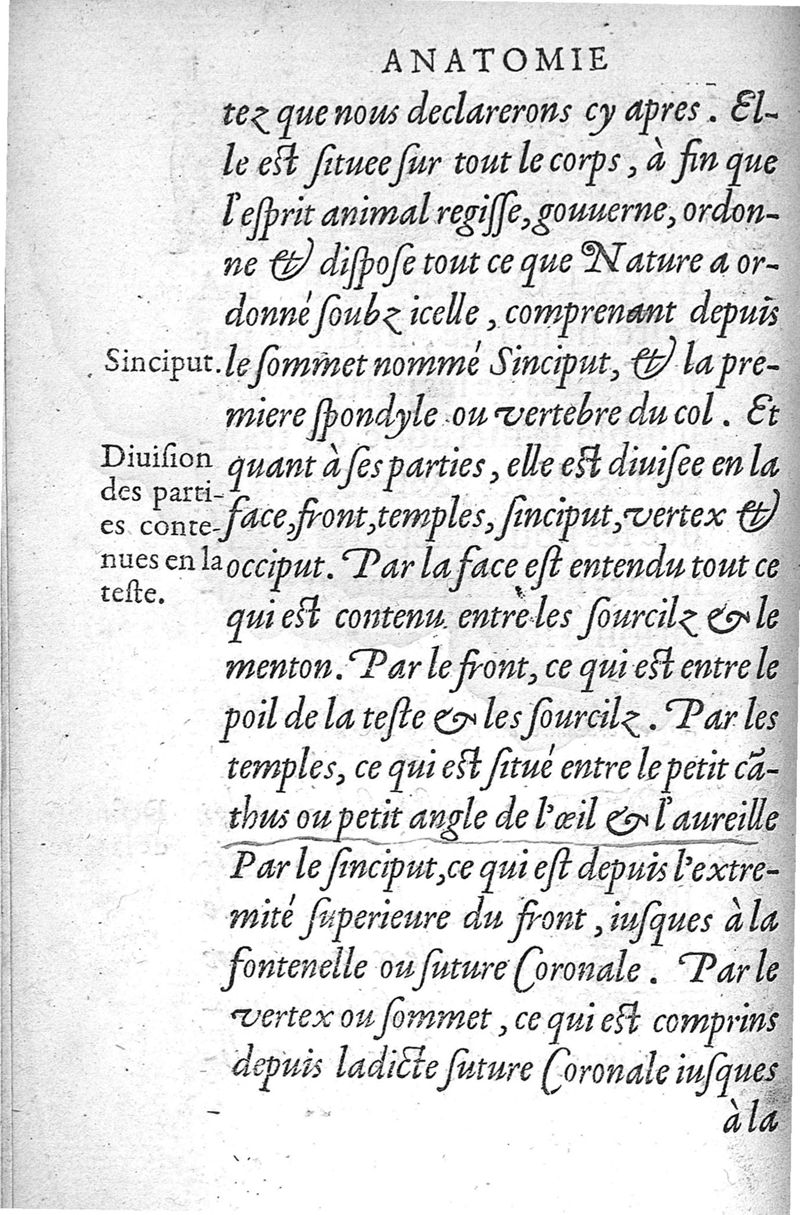 ANATOMIE
tez que nous declarerons cy apres. El-
le est situee sur tout le corps, à fin que
l'esprit animal regisse, gouuerne, ordon-
ne & dispose tout ce que Nature a or-
donné soubz icelle, comprenant depuis
Sinciput.
le sommet nommé Sinciput, & la pre-
miere spondyle ou vertebre du col. Et
Diuision
des parti-
es conte-
nues en la
teste.
quant à ses parties, elle est diuisee en la
face, front, temples, sinciput, vertex &
occiput. Par la face est entendu tout ce
qui est contenu entre les sourcilz & le
menton. Par le front, ce qui est entre le
poil de la teste & les sourcilz. Par les
temples, ce qui est situé entre le petit cã-
thus ou petit angle de l'œil & l'aureille
Par le sinciput, ce qui est depuis l'extre-
mité superieure du front, iusques à la
fontenelle ou suture Coronale. Par le
vertex ou sommet, ce qui est comprins
depuis ladicte suture Coronale iusques
à la